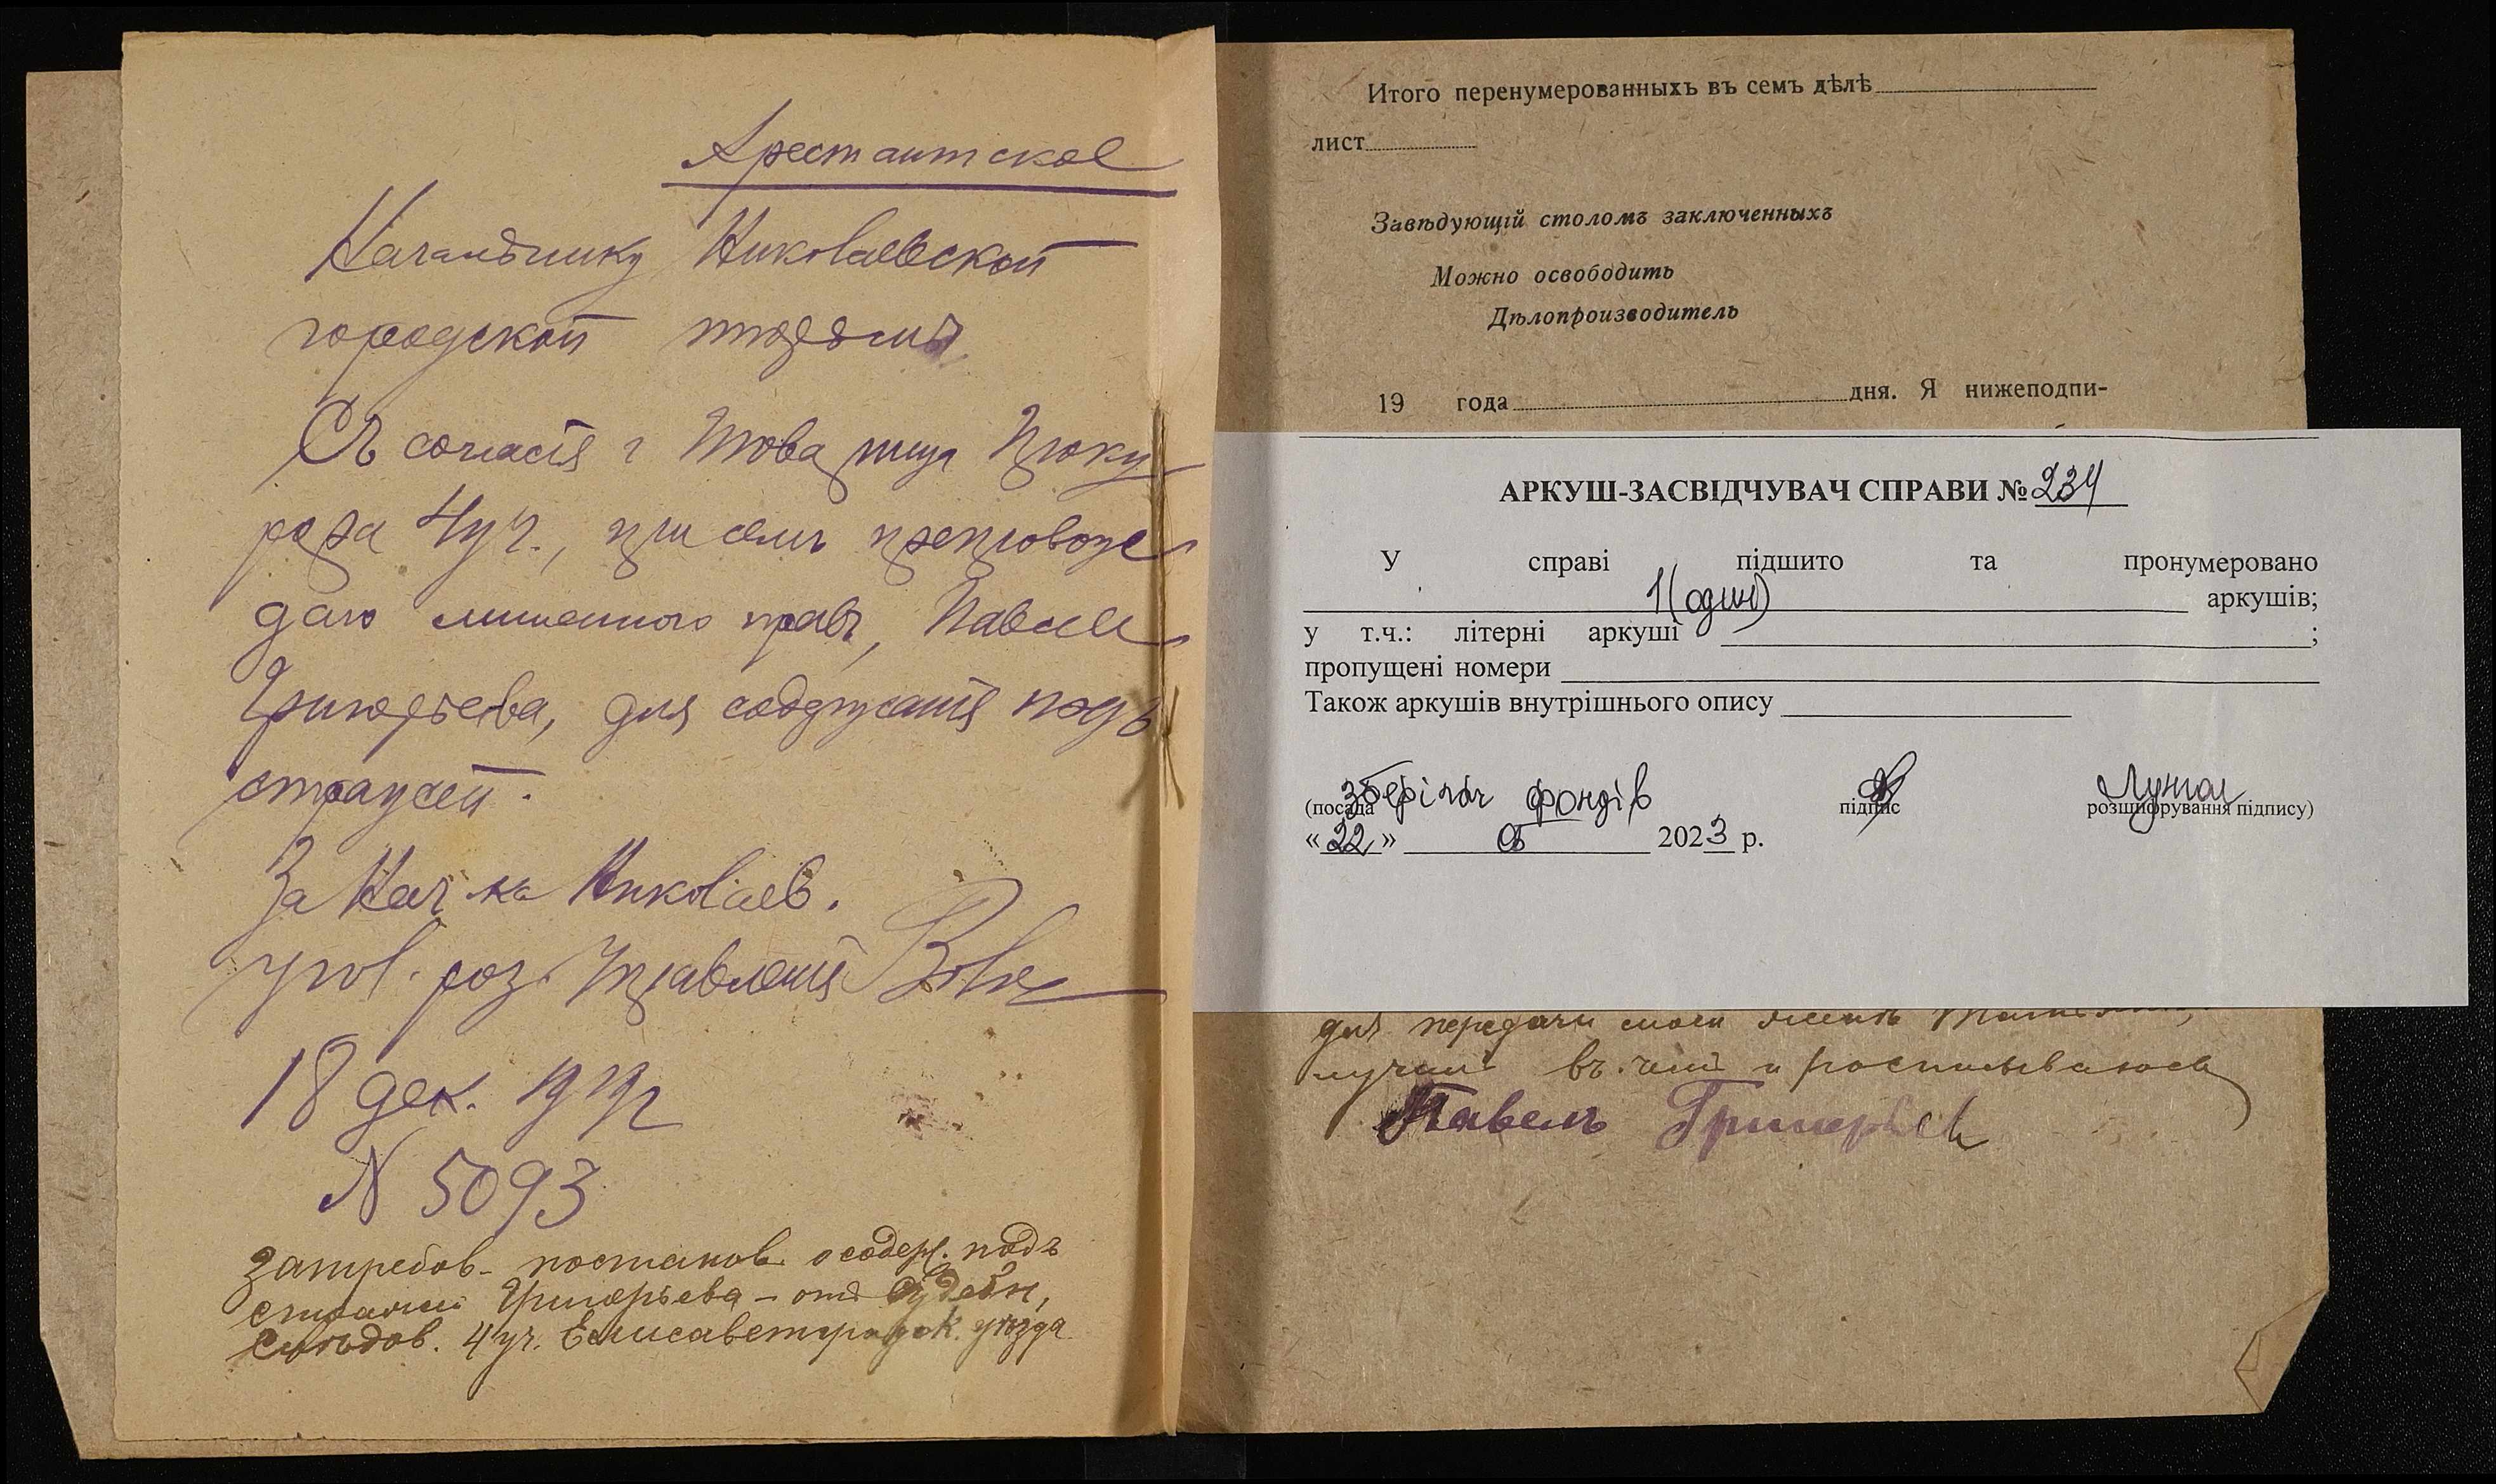 Арестантское
Начальнику Николаевской
городской тюрьмы
Съ согласія г Товарища Проку
рора 4 уч., при семъ препровож
даю лишеннаго правъ, Павла
Григорьева, для содержанія подъ
стражей.
За Нач-ка Николаев.
угол. роз. Управленія
18 дек. 1919 г
N 5093
Затребов. постанов. о содерж. подъ
стражей Григорьева – отъ Судебн,
Слѣдов. 4 уч. Елисаветградск. уѣзда
Итого перенумерованныхъ въ семъ дѣлѣ
лист
Завѣдующій столомъ заключенныхъ
Можно освободить
Дѣлопроизводитель
19 года дня. Я нижеподпи-
АРКУШ-ЗАСВІДЧУВАЧ СПРАВИ № 234
У справі підшито та пронумеровано
1 (один) аркушів;
у т.ч.: літерні аркуші ;
пропущені номери
Також аркушів внутрішнього опису
зберігач фондів
(посада підпис розшифрування підпису)
«22» 2023 р.
для передачи моей женѣ
лучилъ въ чемъ и росписываюсь
Павелъ Григорьев